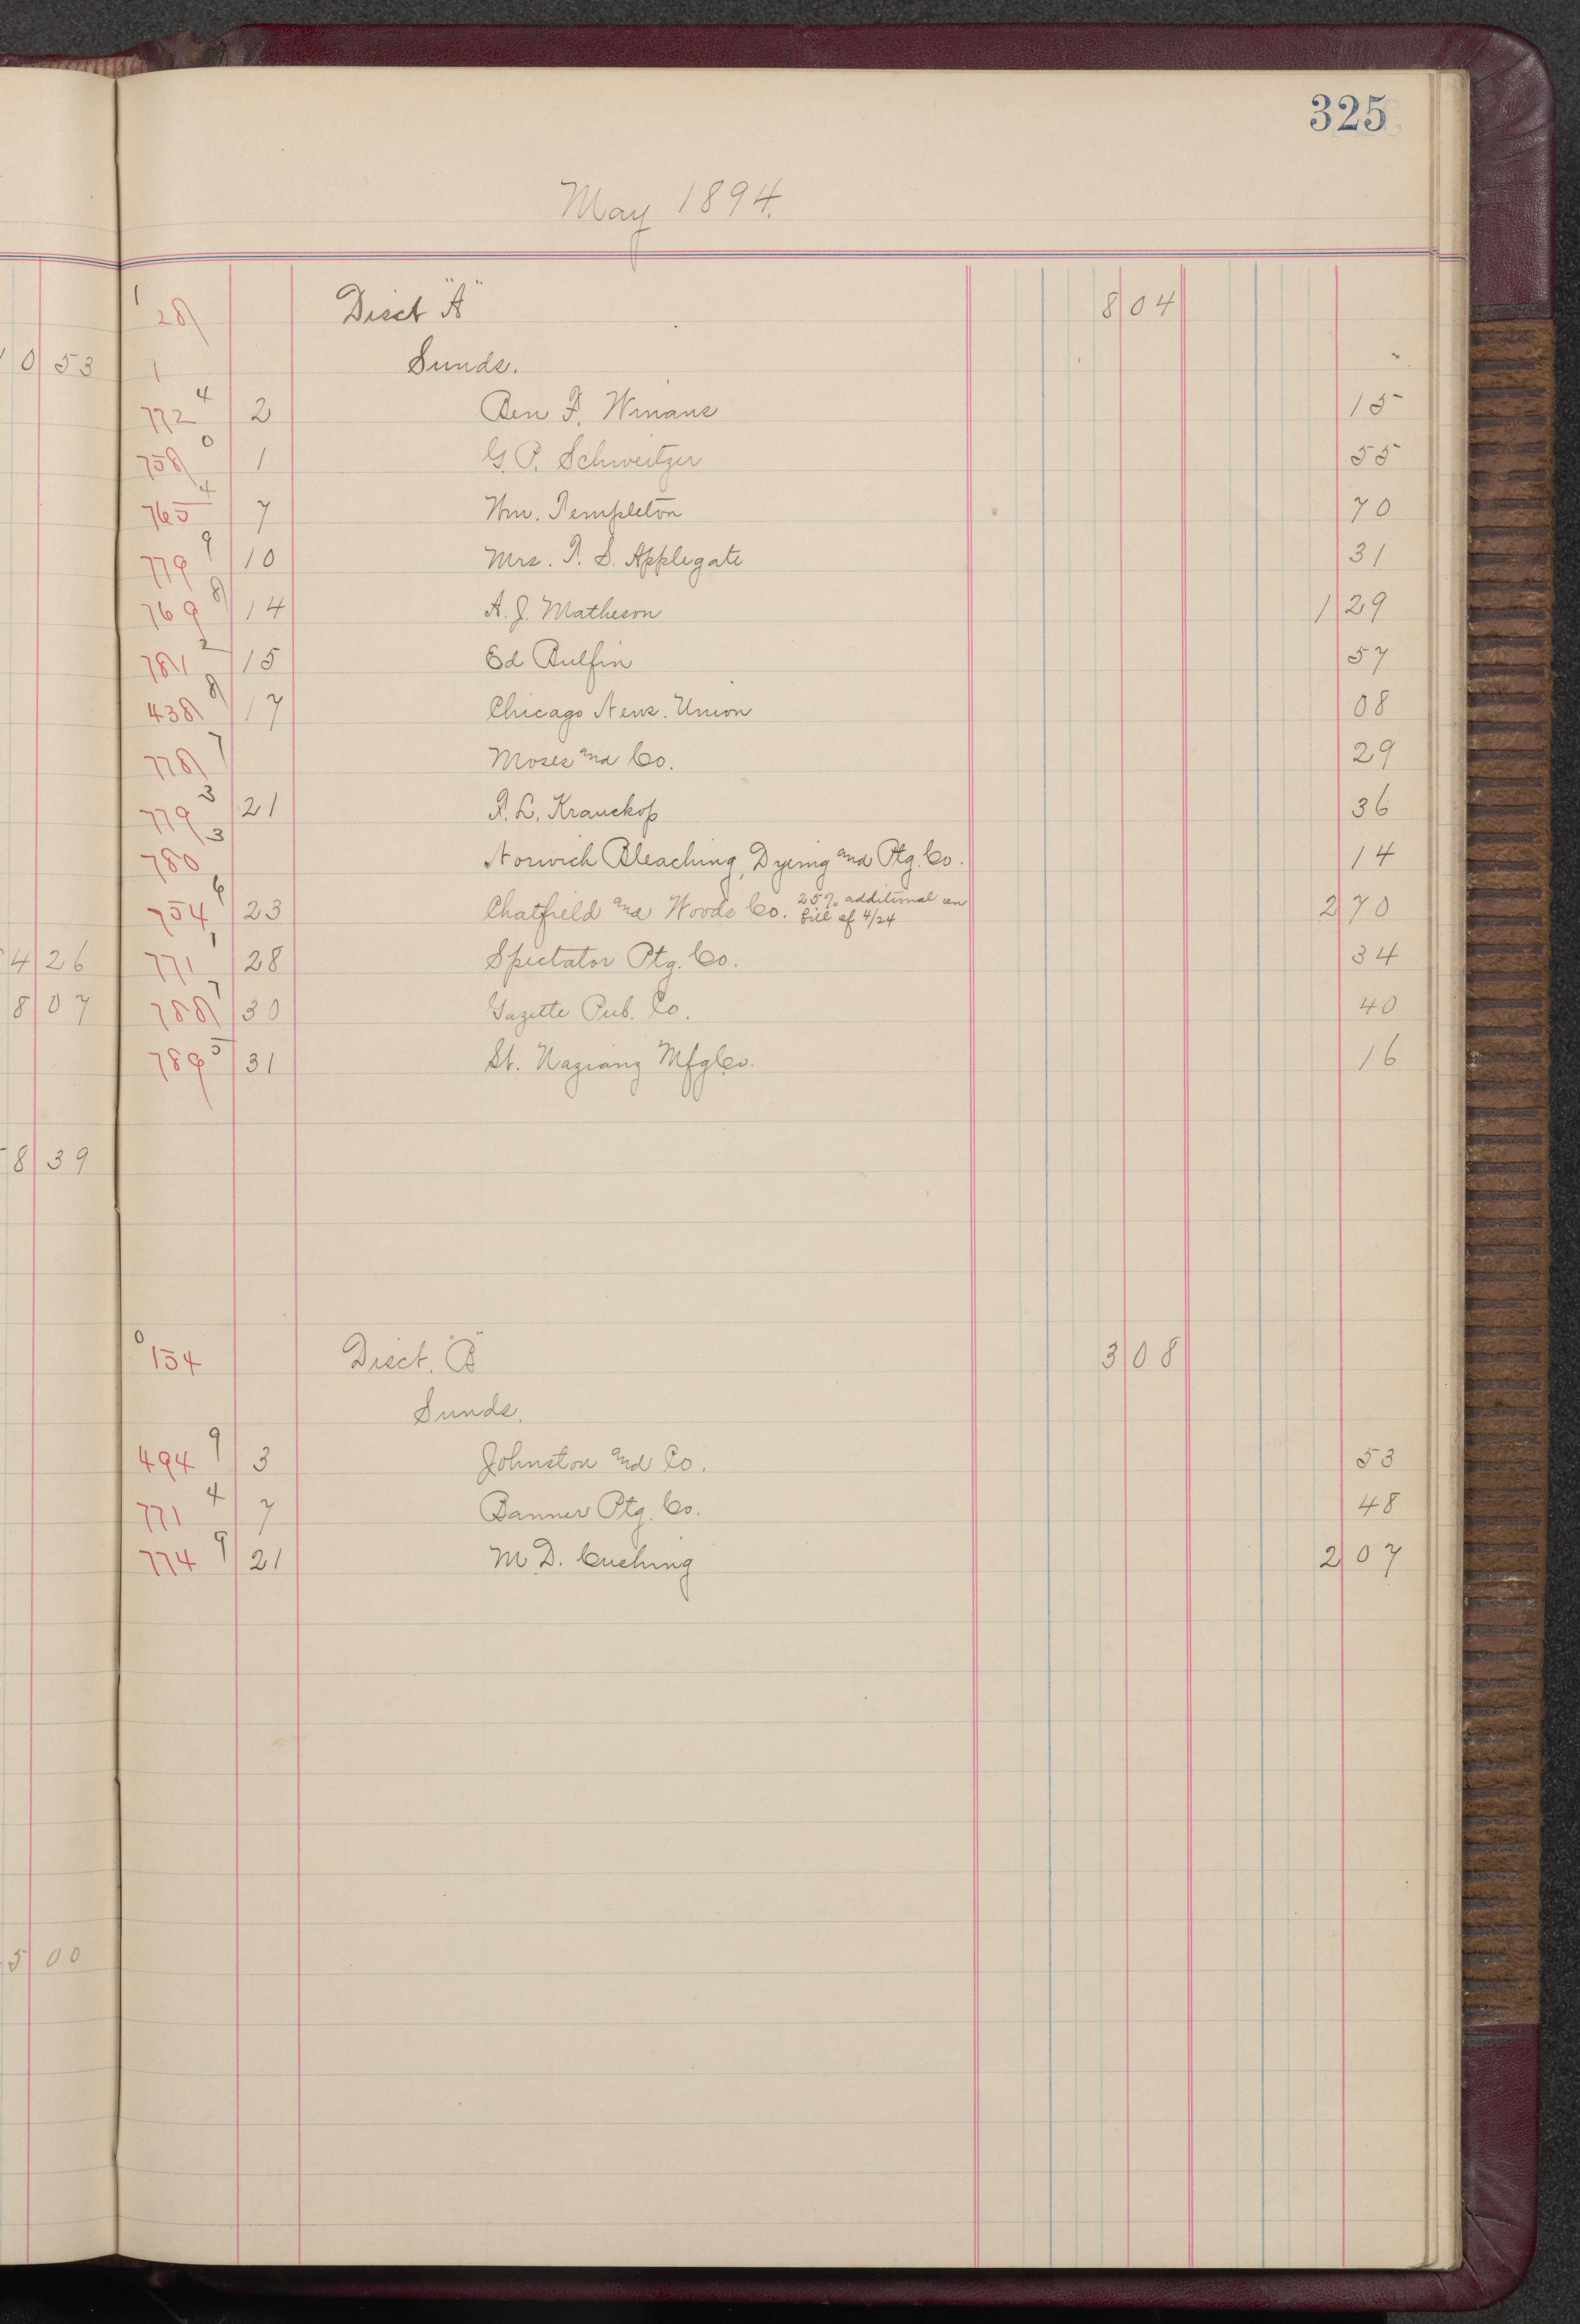 325
May 1894.
1 28 Disct "A" 8 04
0 53 1 Sunds.
772 4 2 Ben F. Winans 15
758 0 1 G. P. Schweitzer 55
765 4 7 Wm. Templeton 70
779 9 10 Mrs. T. S. Applegate 31
769 8 14 A. J. Matheson 1 29
781 2 15 Ed Bulfin 57
438 8 17 Chicago News. Union 08
778 7 Moses and Co. 29
779 3 21 F. L. Krauckop 36
780 3 Norwich Bleaching, Dyeing and Ptg. Co. 14
754 6 23 Chatfield and Woods Co. 25% additional on bill of 4/24 2 70
4 26 771 1 28 Spectator Ptg. Co. 34
8 07 788 7 30 Gazette Pub. Co. 40
789 5 31 St. Nazianz Mfg Co. 16
8 39
0 154 Disct. "B" 3 08
Sunds.
494 9 3 Johnston and Co. 53
771 4 7 Banner Ptg. Co. 48
774 9 21 M. D. Cushing 2 07
5 00